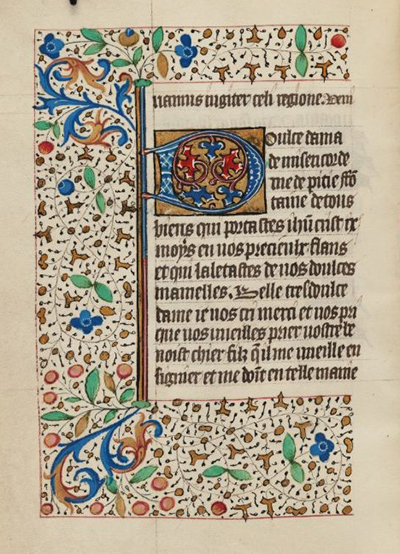 iugiter celi regione.
Doulce dame
de misericorde
mere de pitie fõ
taine de tous
biens qui portastes ihũ crist ix
moys en uos precieulx flans
et qui laletastes de uos doulces
mamelles. Belle tresdoulce
dame ie uos cri merci et uos pri
que uos uueilles prier uostre be
noist chier filz q̃l me uueille en
signier et me doĩt en telle manie